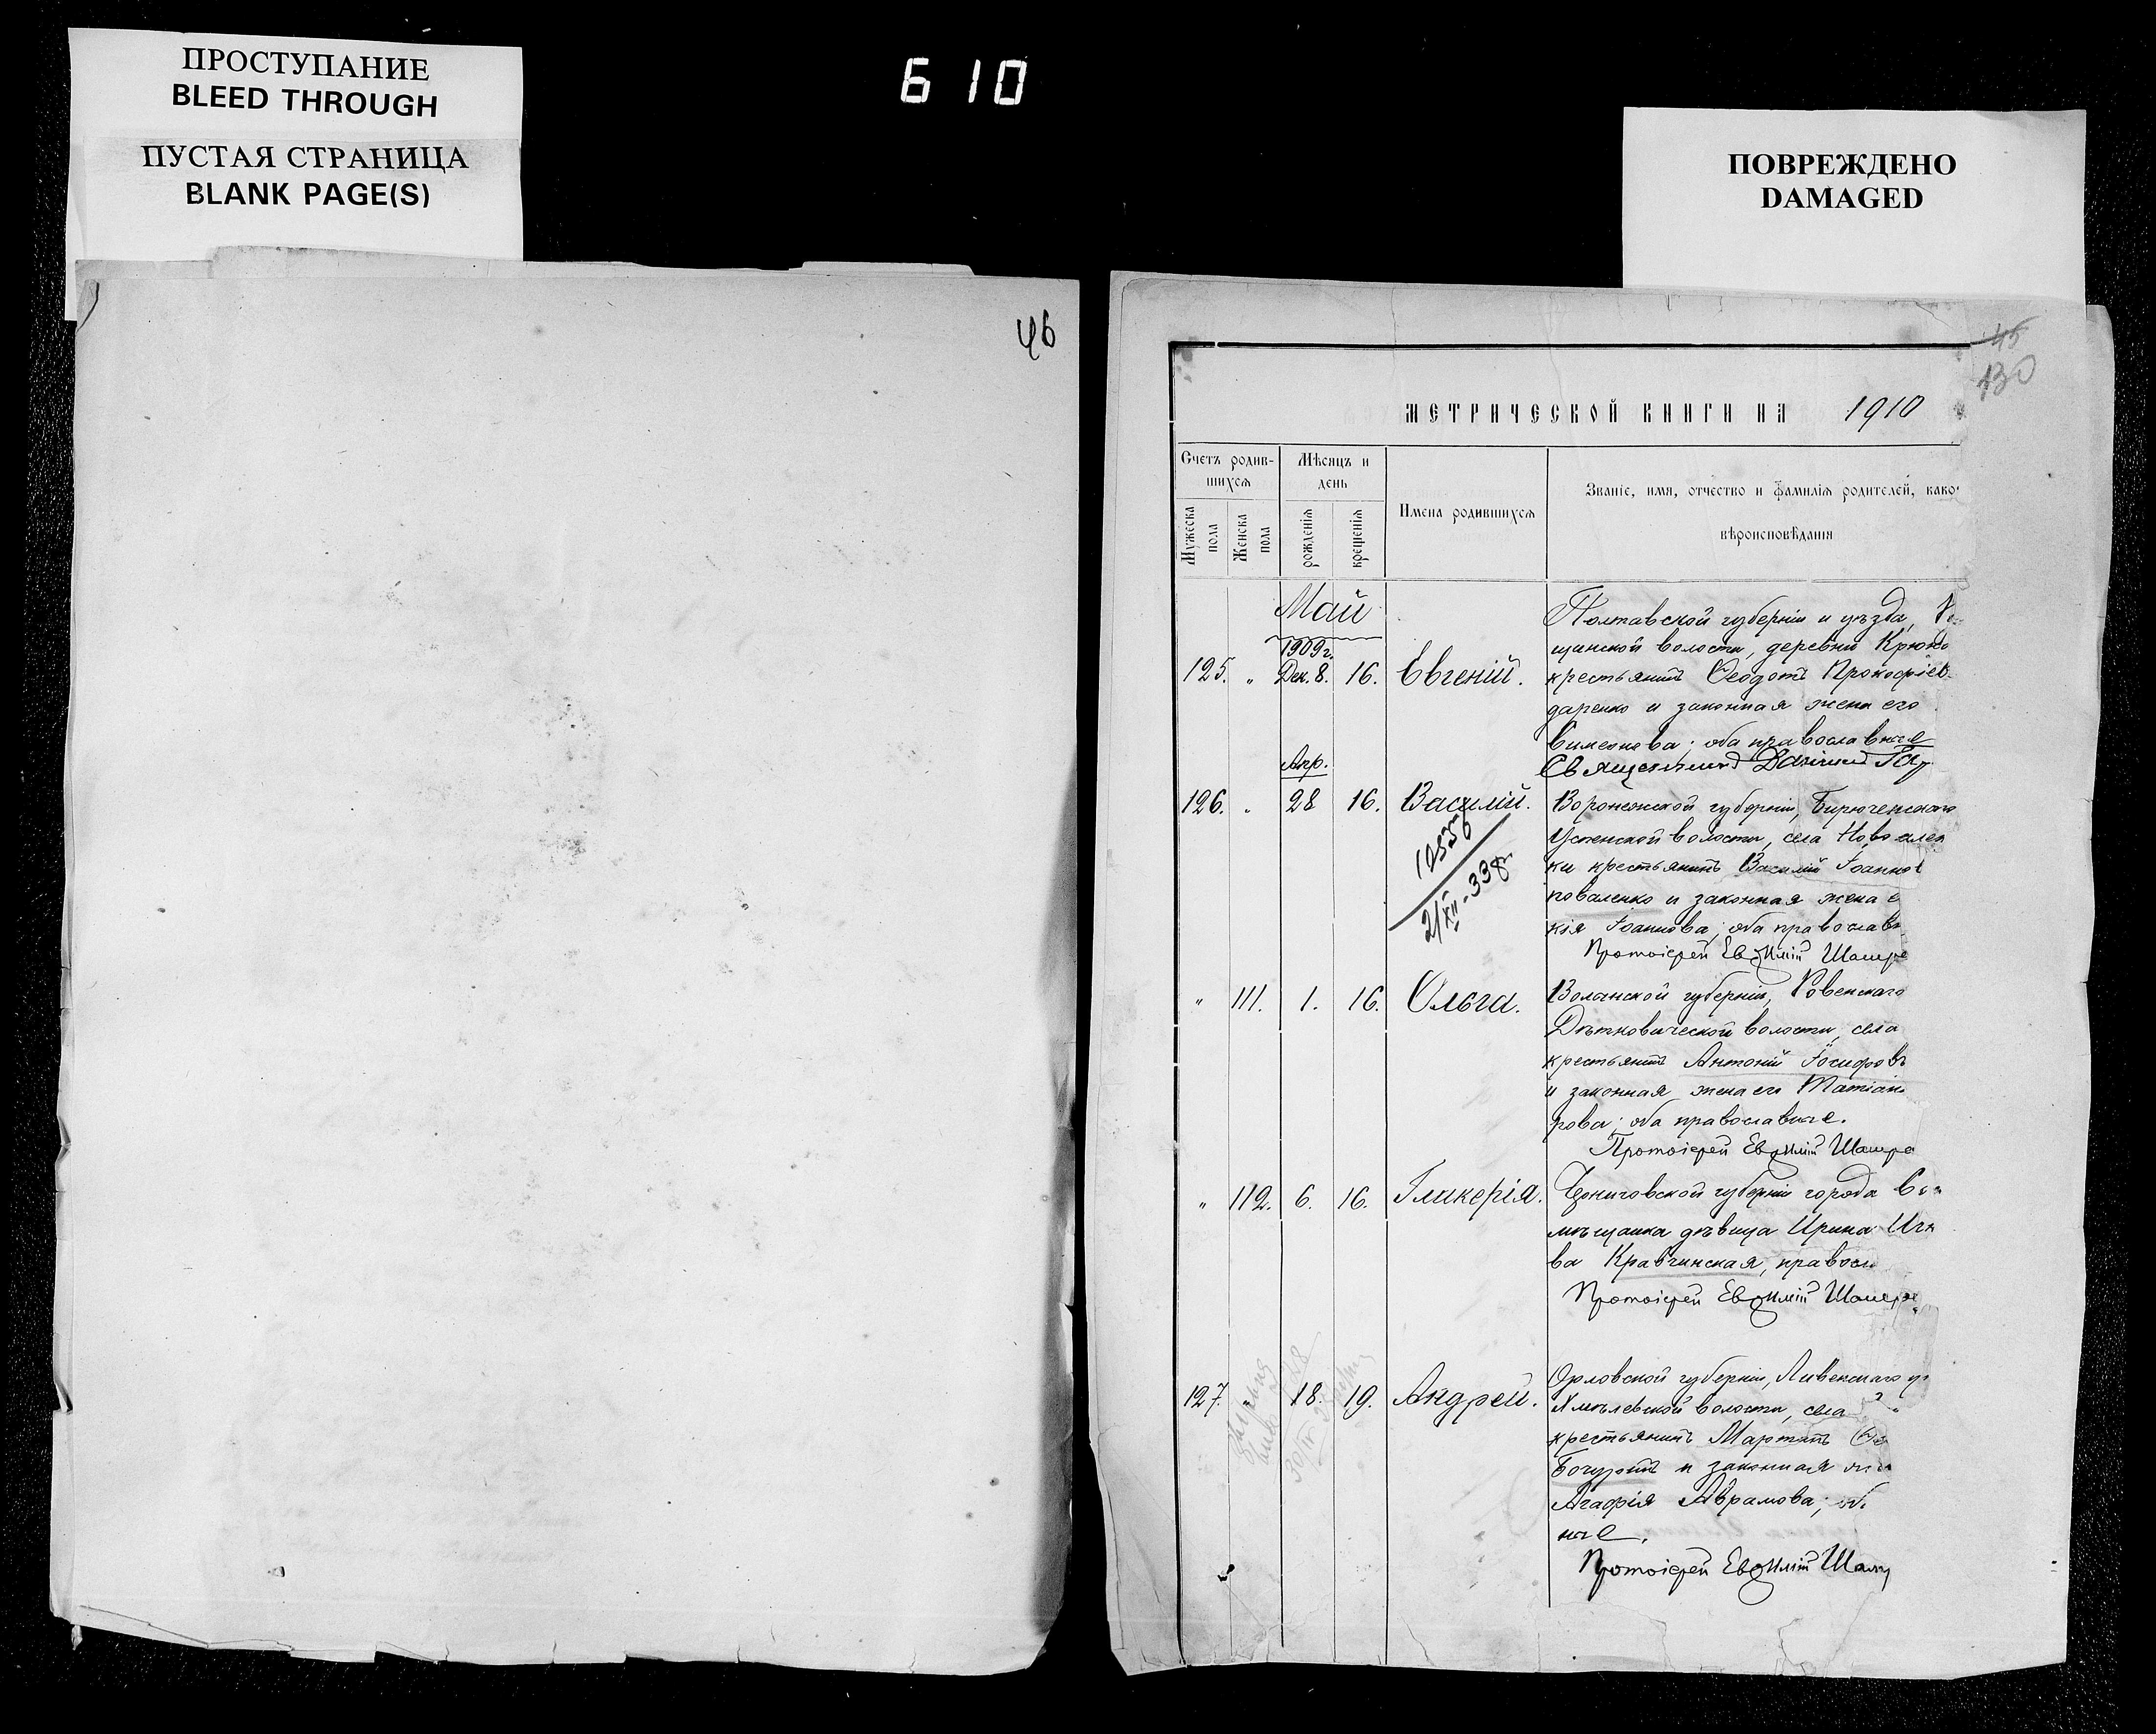 ПРОСТУПАНИЕ
BLEED THROUGH
ПУСТАЯ СТРАНИЦА
BLANK PAGE(S)
610
ПОВРЕЖДЕНО
DAMAGED
46
45
130
МЕТРИЧЕСКОЙ КНИГИ НА 1910
Счетъ родив-
шихся
Мѣсяцъ и
день
Мужеска
пола
Женска
пола
рожденія
крещенія
Имена родившихся
Званіе, имя, отчество и фамилія родителей, како
вѣроисповѣданія
Май
1909 г.
125. " Дек. 8. 16. Евгеній.
Полтавской губерніи и уѣзда,
щинской волости, деревни Крюко
крестьянинъ Ѳеодотъ Прокофіев
даренко и законная жена его
Симеонова; оба православные
Священникъ Даніилъ
Апр.
126. " 28 16. Василій.
12556
21/XII-33 г.
Воронежской губерніи, Бирюченскаго
Успенской волости, села Новоален
ки крестьянинъ Василій Іоаннов
поваленко и законная жена е
кія Іоаннова; оба православн
Протоіерей Евѳимій Шашре
" 111. 1. 16. Ольга.
Волынской губерніи, Ровенскаго
волости, села
крестьянинъ Антоній Іосифовъ
и законная жена его Татіан
рова; оба православные.
Протоіерей Евѳимій Шашре
" 112. 6. 16. Гликерія.
Черниговской губерніи города
мѣщанка дѣвица Ирина Игн
ва Кравчинская, правосл
Протоіерей Евѳимій Шашре
127. " 18. 19. Андрей.
Орловской губерніи, Ливенскаго у
волости, села
крестьянинъ Мартинъ
и законная
Агафія Аврамова; об
ные.
Протоіерей Евѳимій Шашр